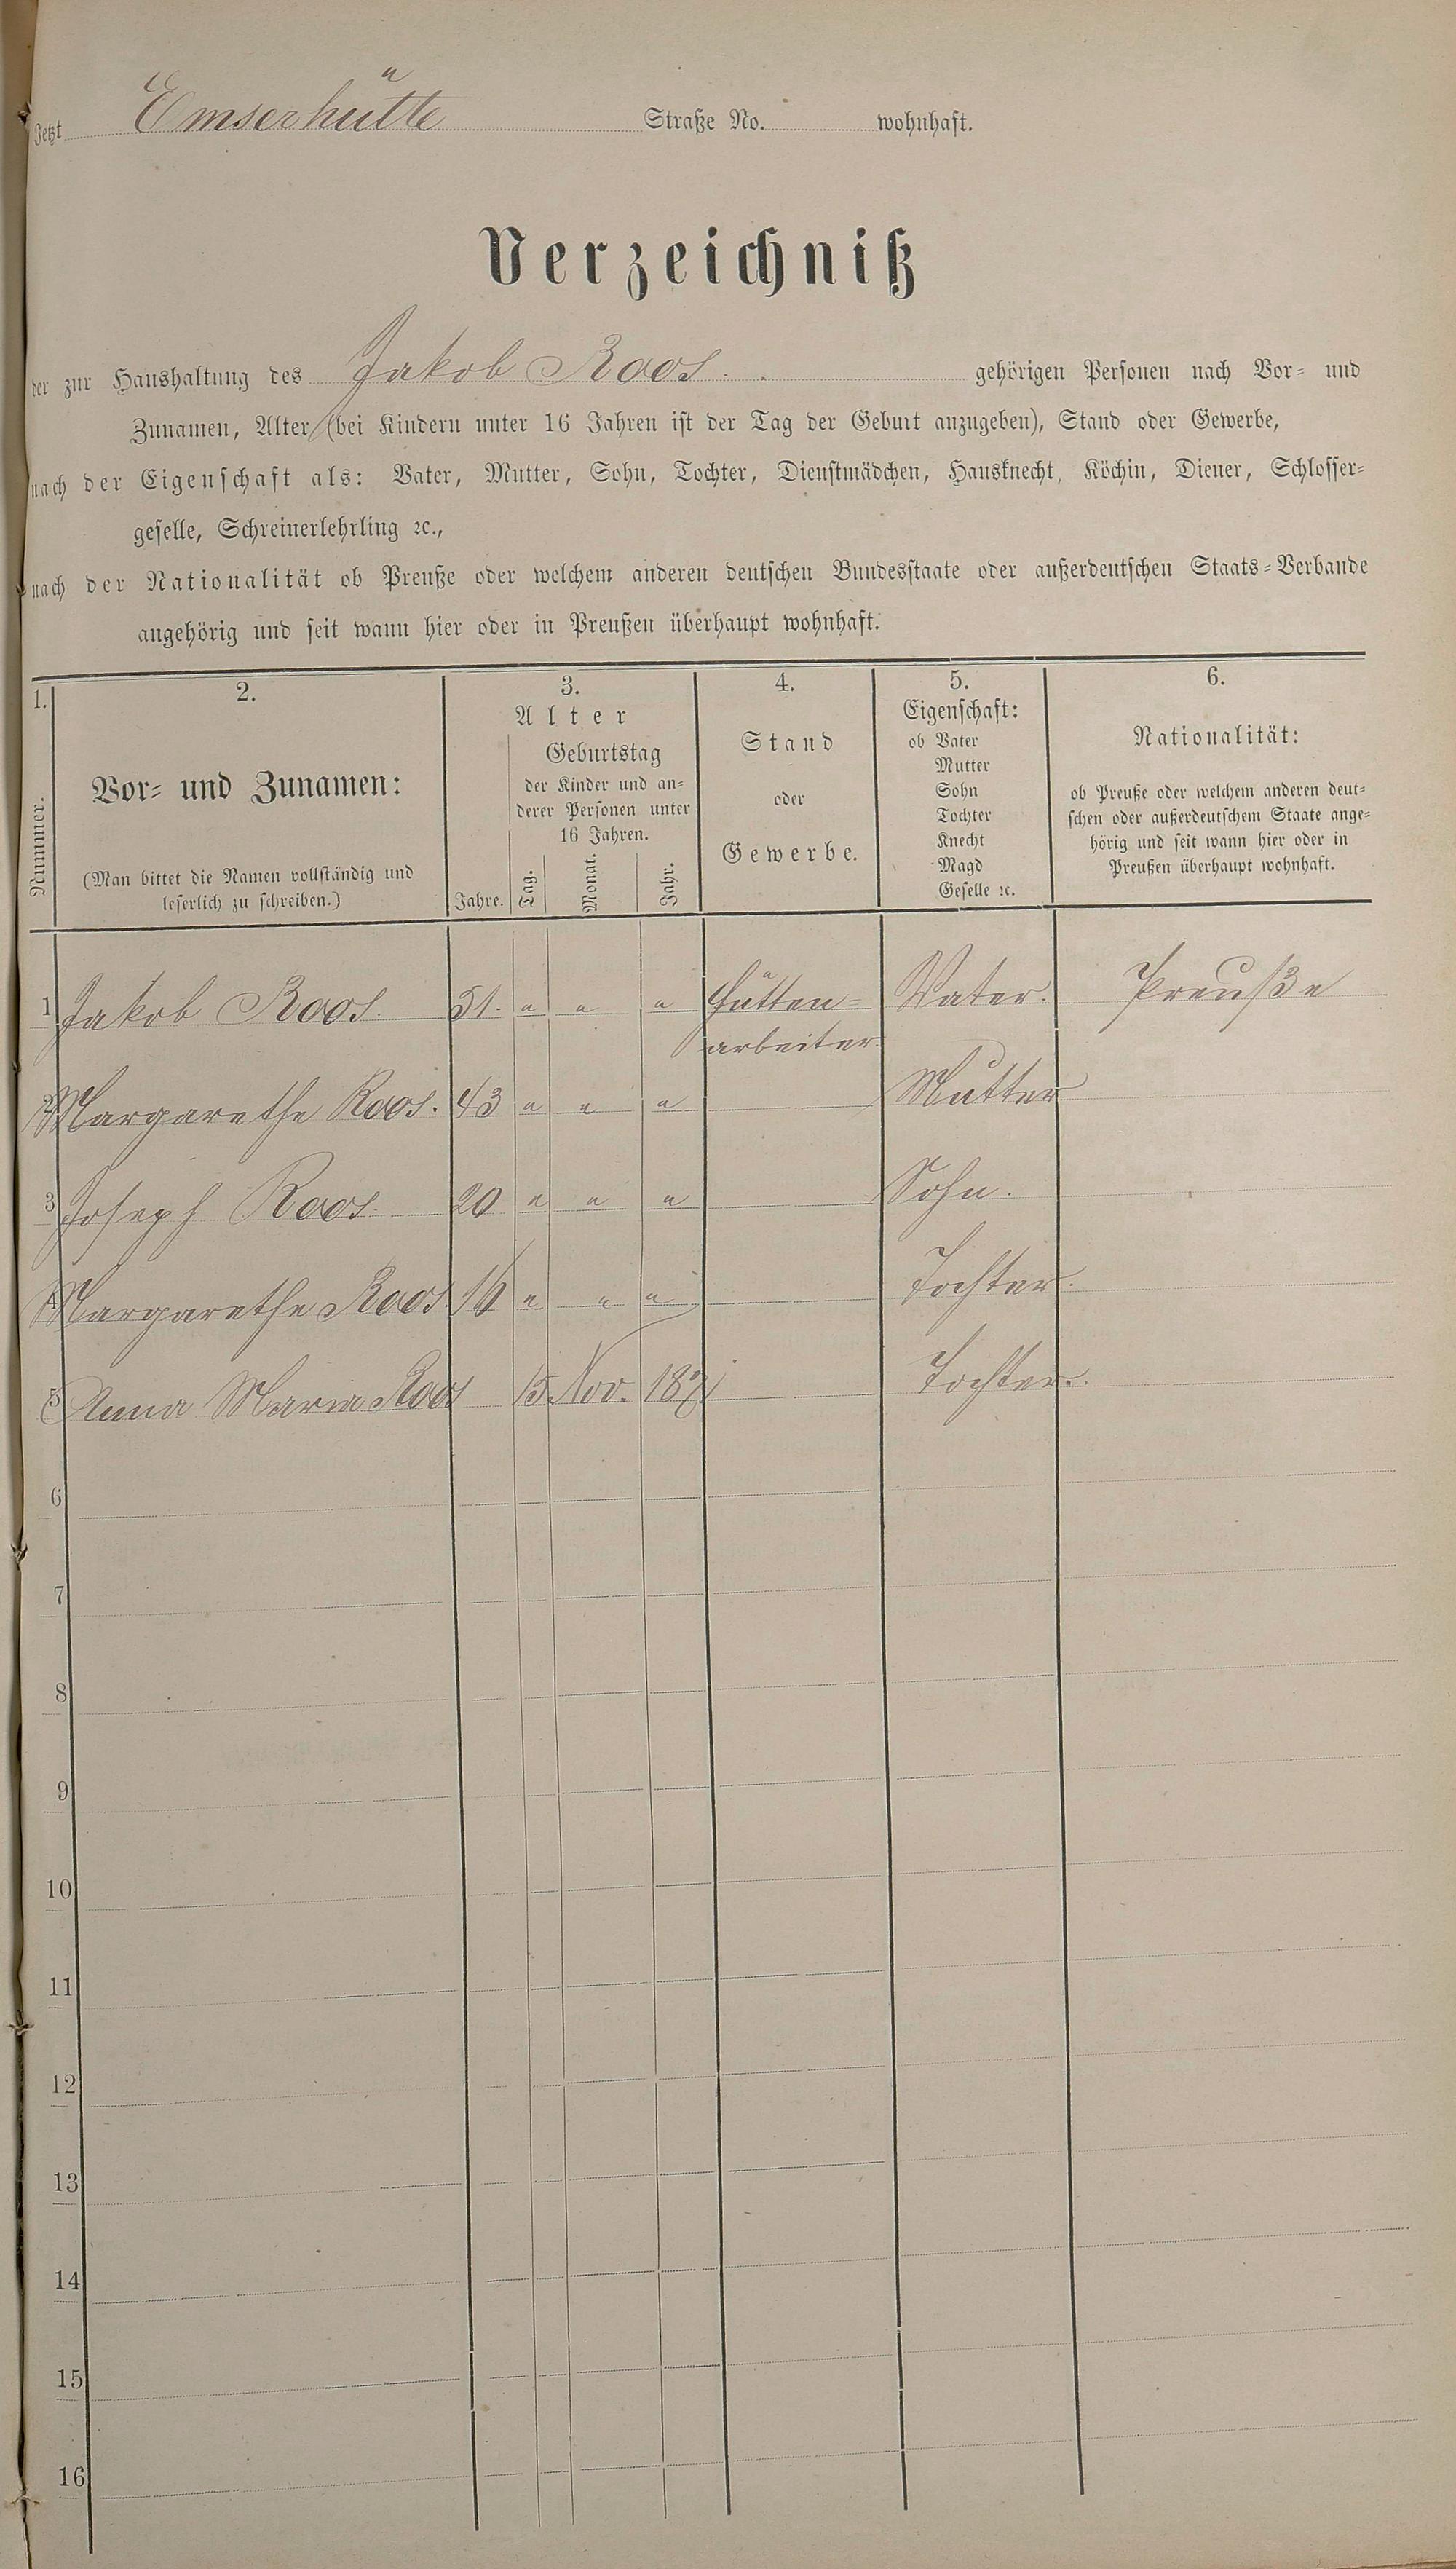 Jetzt Emserhütte Straße No. wohnhaft.
Verzeichniß
der zur Haushaltung des Jakob Roos. gehörigen Personen nach Vor- und
Zunamen, Alter (bei Kindern unter 16 Jahren ist der Tag der Geburt anzugeben), Stand oder Gewerbe,
nach der Eigenschaft als: Vater, Mutter, Sohn, Tochter, Dienstmädchen, Hausknecht, Köchin, Diener, Schlosser-
geselle, Schreinerlehrling ꝛc.,
nach der Nationalität ob Preuße oder welchem anderen deutschen Bundesstaate oder außerdeutschen Staats-Verbande
angehörig und seit wann hier oder in Preußen überhaupt wohnhaft.
1.
Nummer.
2.
Vor- und Zunamen:
(Man bittet die Namen vollständig und
leserlich zu schreiben.)
3.
Alter
Jahre.
Geburtstag
der Kinder und an-
derer Personen unter
16 Jahren.
Tag. Monat. Jahr.
4.
Stand
oder
Gewerbe.
5.
Eigenschaft:
ob Vater
Mutter
Sohn
Tochter
Knecht
Magd
Geselle ꝛc.
6.
Nationalität:
ob Preuße oder welchem anderen deut-
schen oder außerdeutschem Staate ange-
hörig und seit wann hier oder in
Preußen überhaupt wohnhaft.
1 Jakob Roos. 51. " " " Hütten- Vater. Preuße
arbeiter.
2 Margarethe Roos. 43 " " " Mutter
3 Joseph Roos. 20 " " " Sohn.
4 Margarethe Roos. 16 " " " Tochter.
5 Anna Maria Roos 15. Nov. 1871 Tochter.
6
7
8
9
10
11
12
13
14
15
16